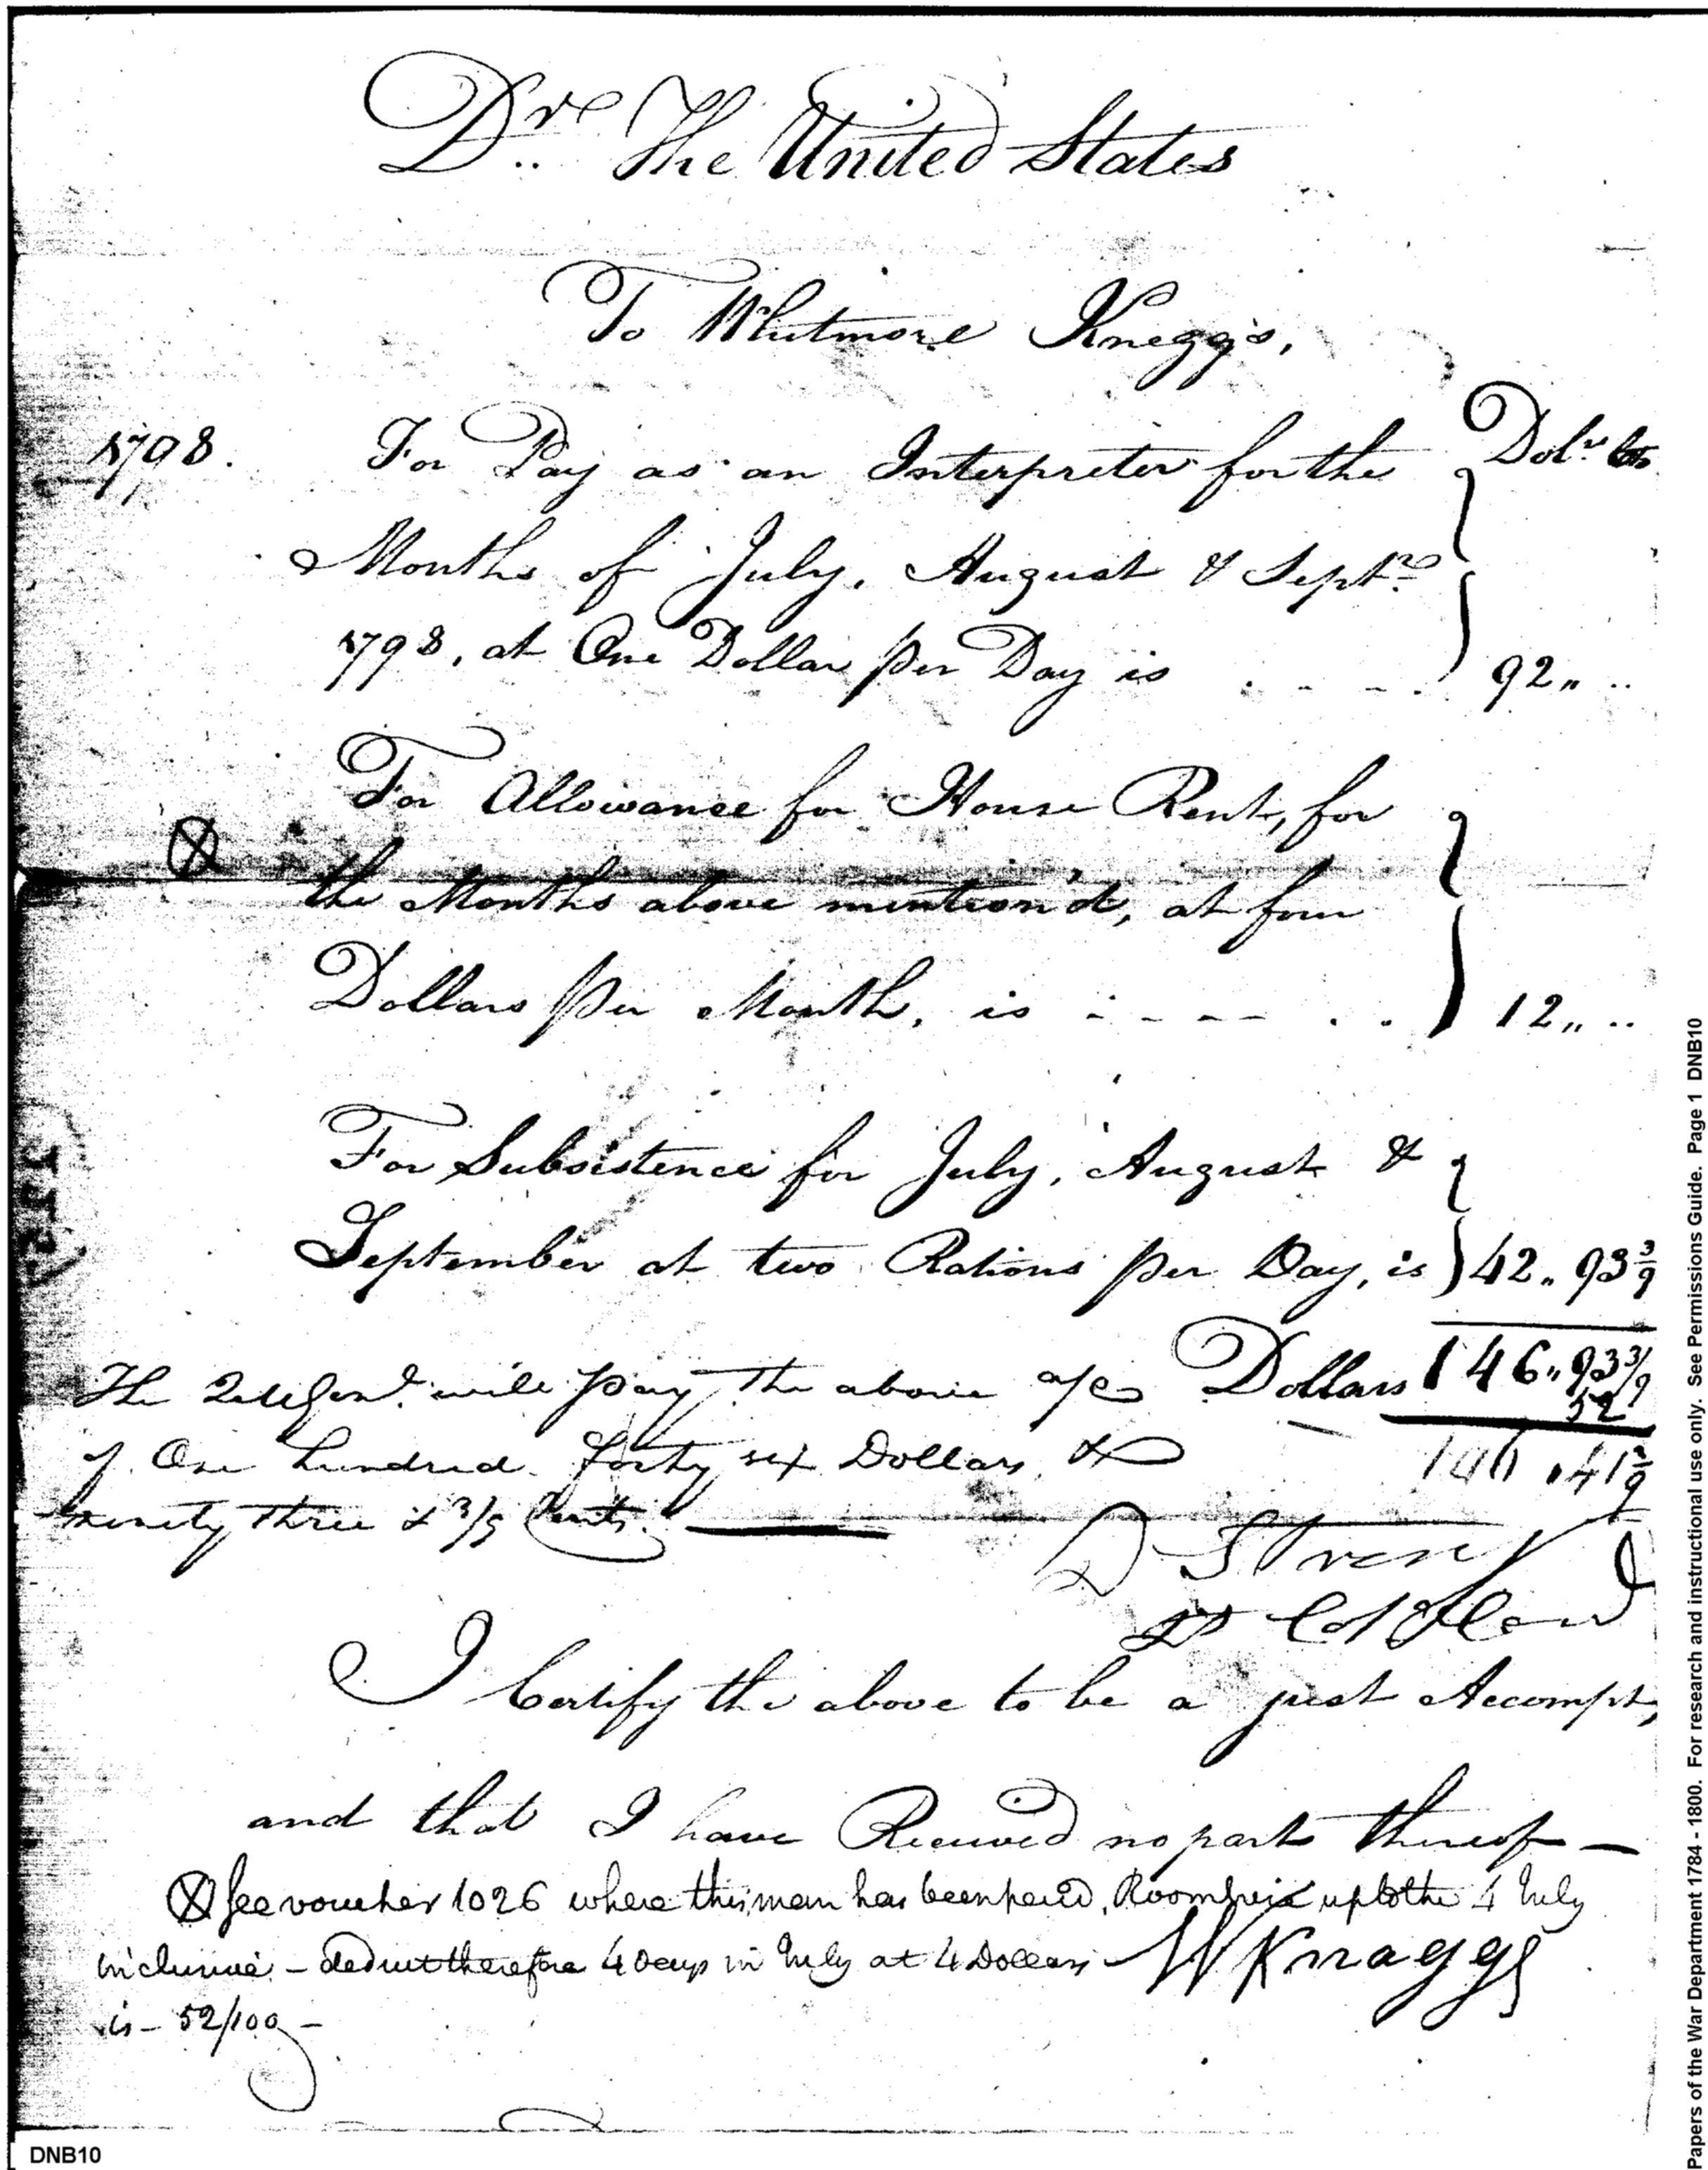 Dr. The United States
To Whitmore Kneggs,
1798. For Pay as an Interpreter for the Dolrs Cts
Months of July, August & Septr.
1798, at One Dollar per Day is . . . . 92 „ ..
For Allowance for House Rent, for
the Months above mention'd, at four
Dollars per Month, is . . . . . . 12 „ ..
For Subsistence for July, August &
September at two Rations per Day, is 42 „ 93 3/9
The will pay the above a/c Dollars 146 „ 93 3/9
52
of One hundred forty six Dollars & 146 . 41 3/9
ninety three & 3/9 Cents.
D Strong
Lt Col
I Certify the above to be a just Accompt,
and that I have Received no part thereof —
⊗ See voucher 1026 where this man has been paid, Room hire up to the 4 July
inclusive – deduct therefore 4 Days in July at 4 Dollars
W Knaggs
is – 52/100 –
Papers of the War Department 1784 - 1800. For research and instructional use only. See Permissions Guide. Page 1 DNB10
DNB10